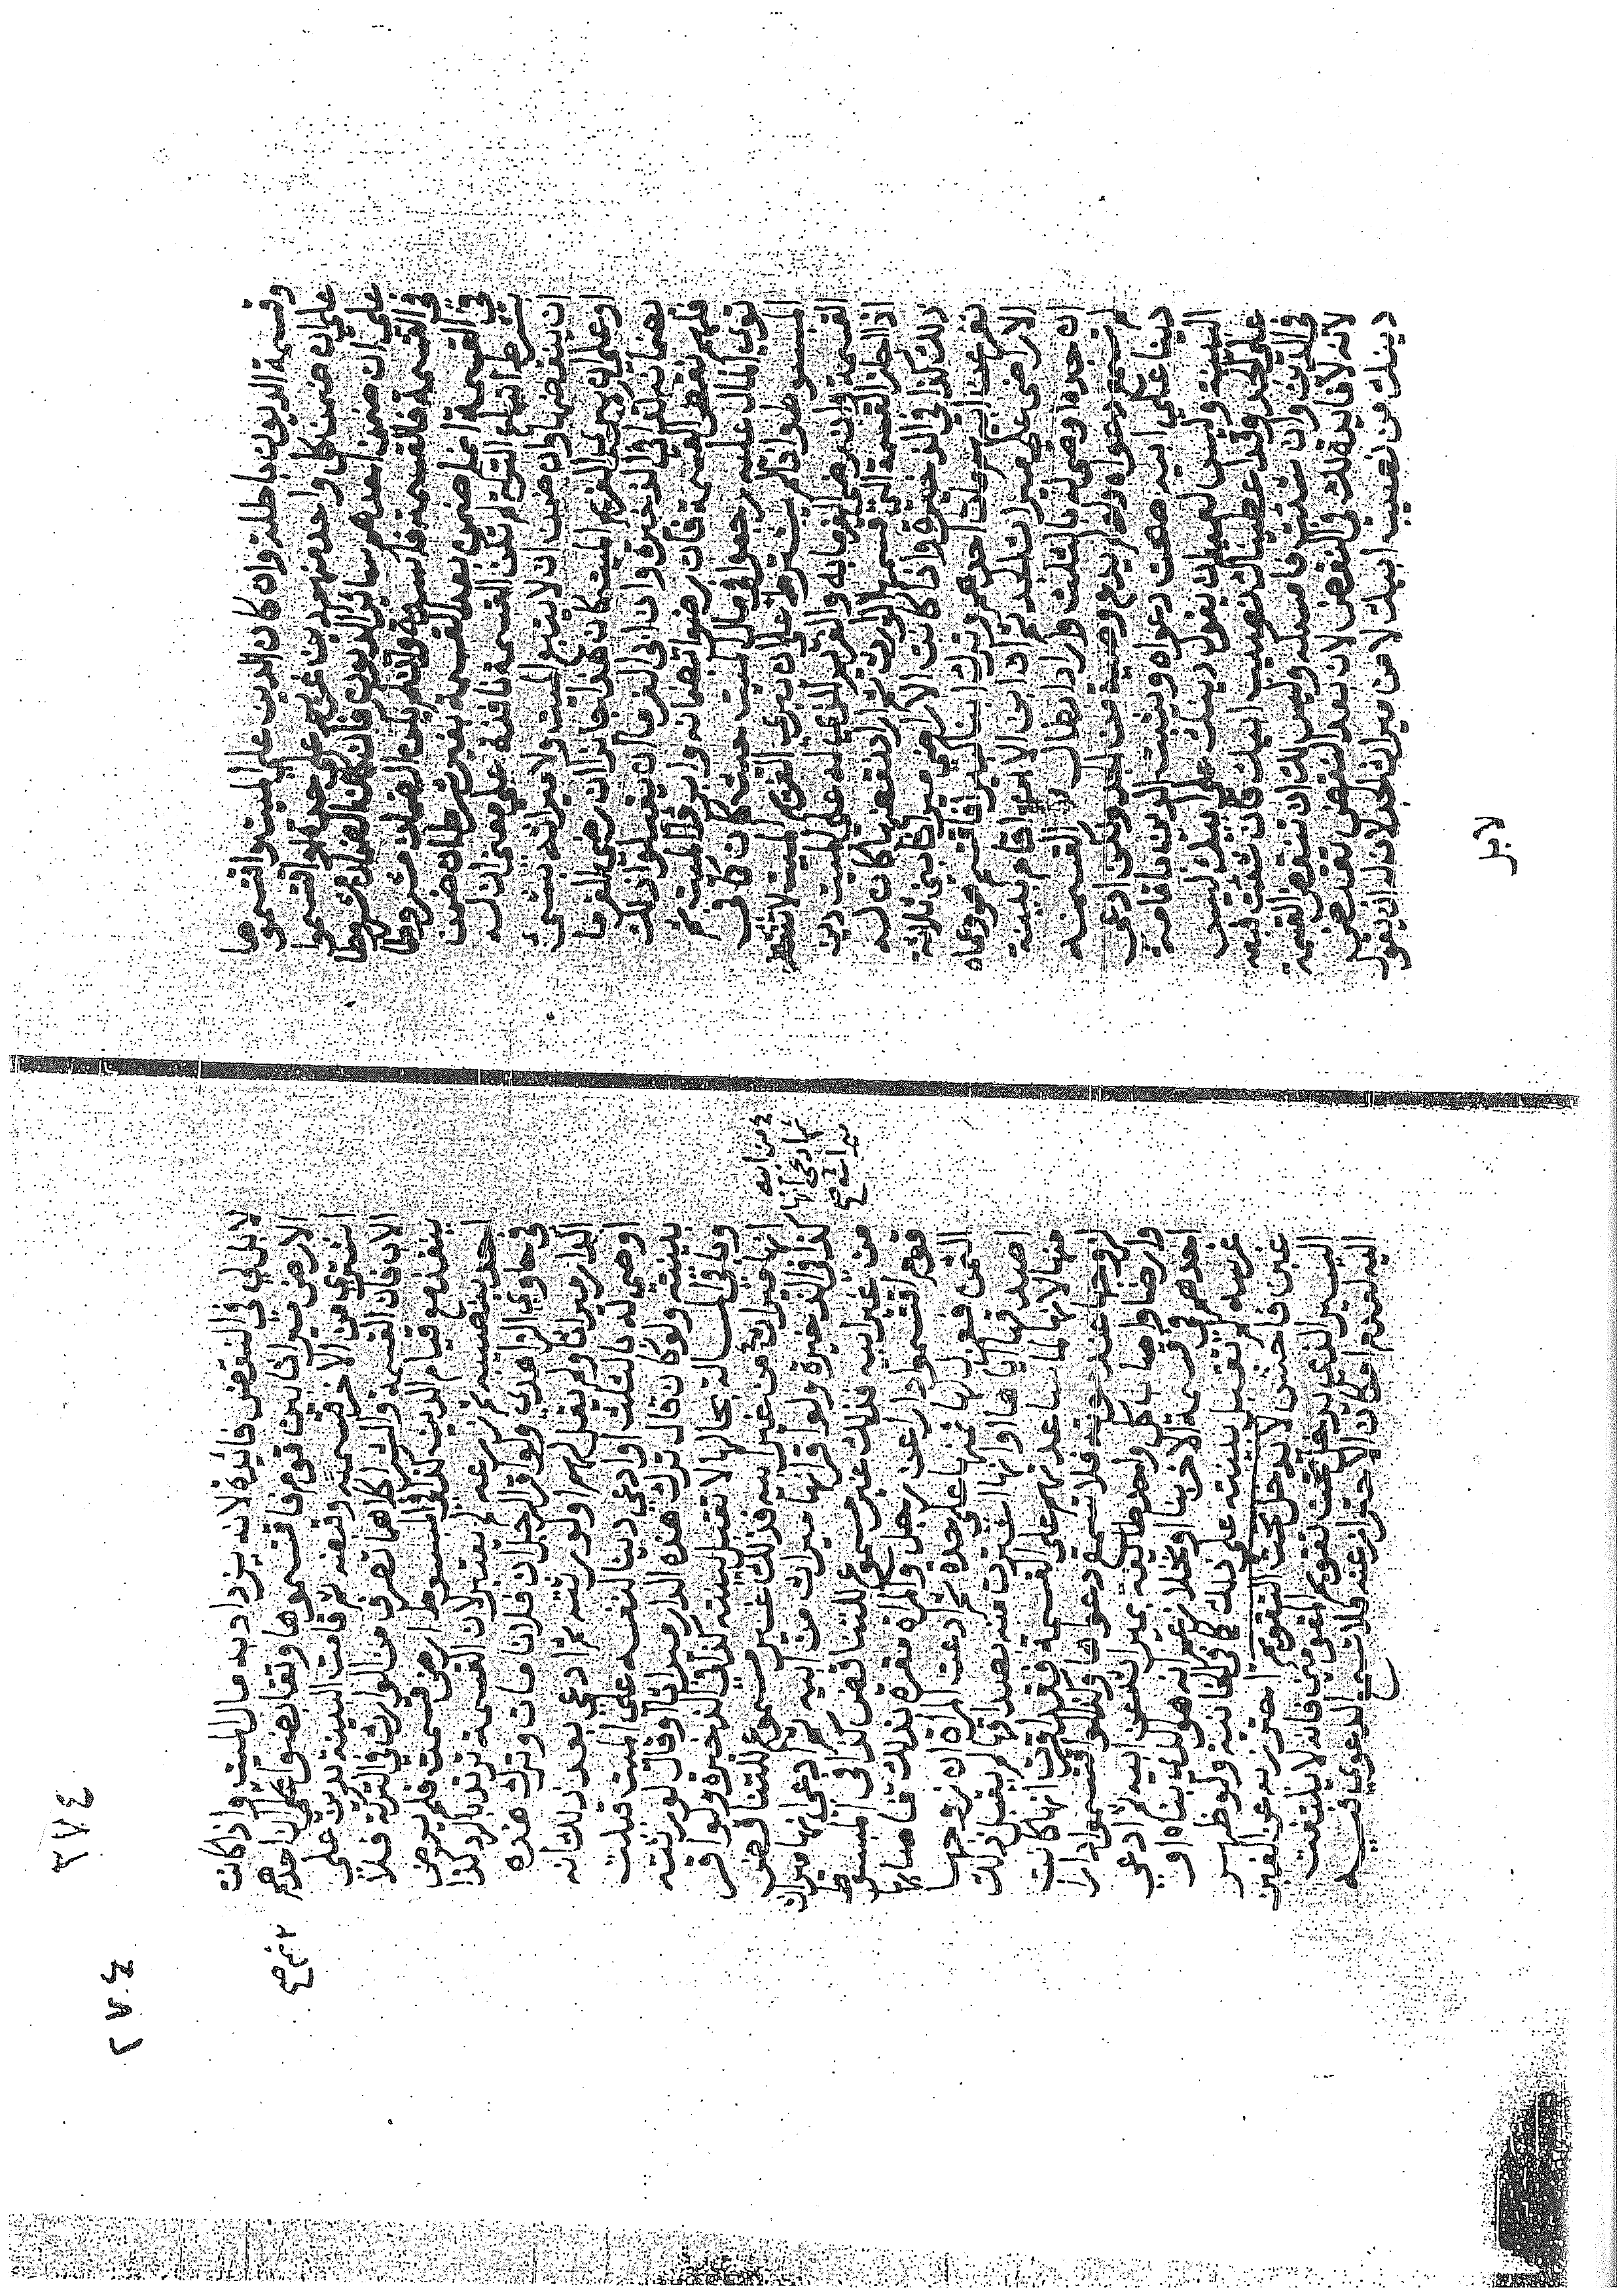 وقسمة الديون باطلة وان كان الدين على الميت واقتسموها
على ان ضمن كل واحد منهم دين غريم على حدة او اقتسموا
على ان ضمن احدهم سائر الديون فان كان الضمان مشروطا
في القسمة فالقسمة فاسدة وان لم يكن الضمان مشروطا
في القسمة انما ضمن بعد القسمة بغير شرط ان ضمن
بشرط اتباع التركة لم تكن القسمة نافذة على معنى ان له
ان ينقضها وان ضمن ان لا يتبع الميت ولا ميراثه بشئ
وعلى ان يبرئ الغريم الميت كان هذا جائزا ان رضى الغرما
بضمانه كذا في الذخيرة وان ابى الغرما ان يقبلوا ذلك
فلهم نقض القسمة فان رضوا بضمانه وابروا الميت ثم
توى المال عليه رجعوا في مال الميت حيث كان كذا في
المبسوط واذا لم يشترط على ان يبرئ الغريم الميت لا تنفذ
القسمة وان رضى الغرما به والغريم الذي له على الميت دين
اذا اجاز القسمة التي قسمها الورثة ثم اراد نقضها كان له
ذلك كذا في الذخيرة واذا كانت الاراضي ميراثا بين ثلاثة
نفر عن ابيهم مات احدهم وترك ابنا كبيرا فاقتسم هو وعماه
الاراضي على ميراث الجد ثم ان ابن الابن اقام البينة
ان جده اوصى له بالثلث واراد ابطال القسمة
لم تسمع دعواه ولو لم يدع وصية من الجد ولكن ادعى
دينا على ابيه صحت دعواه ويثبت الدين باقامة
البينة وليس لعميه ان يقول دينك على ابيك ليس
على الجد وقد اعطيناك نصيب ابيك فان شئت فبعه
في الدين وان شئت فامسكه وليس لك ان تنقض القسمة
لانه لا فائدة لك في النقض لان بعد النقض يقضى
دينك من نصيب ابيك لا من ميراث الجد لان له ان يقول
لا بل
٢٧٤
لا بل لي في النقض فائدة لانه يزداد به مال الميت واذا كانت
الارض ميراثا بين قوم فاقتسموها وتقابضوا ثم ان احدهم
اشترى من الاخر قسمه وقبضه ثم قامت البينة بدين على
الاب فان القسمة والشرا كلاهما تصرف من الوارث في التركة فلا
ينفذ مع قيام الدين كذا في المبسوط ارض قسمت فلم يرض
احد بنصيبه ثم زرعه لم يعتبر لان القسمة ترتد بالرد كذا
في حاوي الزاهدي ولو اقر الرجل ان فلانا مات وترك هذه
الدار ميراثا ولم يقل لهم او لورثته ثم ادعى بعد ذلك انه
اوصى له بالثلث او ادعى دينا لنفسه على الميت قبلت
بينته ولو كان قال ترك هذه الدار ميراثا وقال لورثته
وباقي المسألة بحالها لا تقبل بينته كذا في الذخيرة ولو اقر
انها ميراث من غير ابيه فذلك غير مسموع للتناقض
كذا في الذخيرة ولو اقر انها ميراث من ابيه ثم ادعى انها ميراث
من غير ابيه فذلك غير مسموع للتناقض كذا في المبسوط
قوم اقتسموا دارا عن رجل والمرأة مقرة بذلك فاصابها
الثمن فعزل لها ثمنها على حدة ثم ادعت المرأة ان زوجها
اصدقها اياها او انها اشترت منه بصداقها لم يقبل ذلك
منها لانها لما ساعدتهم على القسمة فقد اقرت انها كانت
لزوجها عند موته فلا تسمع دعواها وكذا لو اقتسموا دارا
وارضا واصاب كل واحد طائفة بميراثهم عن ابيهم ثم ادعى
احدهم في قسم الاخر بنا او نخلا زعم انه هو الذي بناه او
غرسه لم تقبل بينته على ذلك كذا في الخانية ولو ظهر
غبن فاحش لا يدخل تحت التقويم احترز به عن الغبن
اليسير الذي يدخل تحت تقويم المقومين فانه لا يلتفت
اليه لعدم امكان الاحتراز عنه فلا تسمع الدعوى فيه